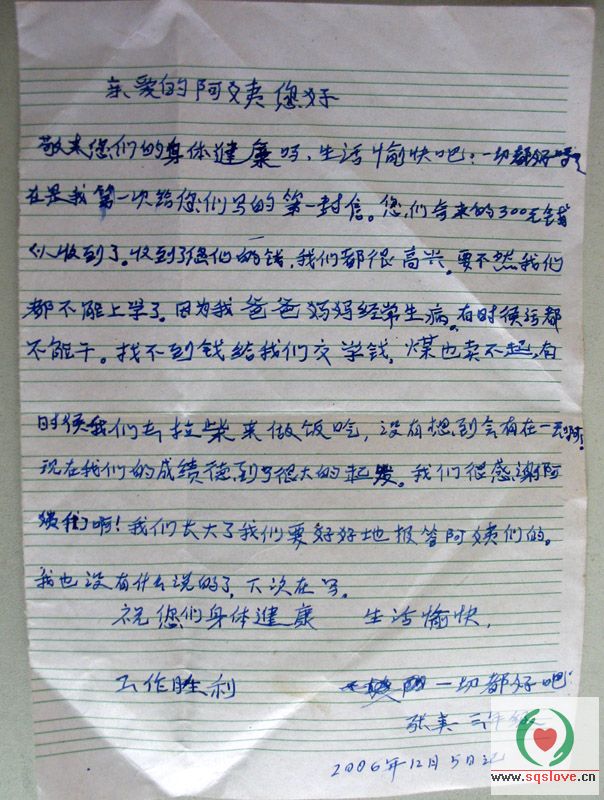 亲爱的阿姨您好
敬来您们的身体健康吗、生活愉快吧?一切都好
在是我第一次给您们写的第一封信。您们寄来的300元钱
收到了。收到了您们的钱,我们都很高兴。要不然我们
都不能上学了。因为我爸爸妈妈经常生病。有时候活都
不能干。找不到钱给我们交学钱,煤也卖不起,有
时候我们去拉柴来做饭吃,没有想到会有在一
现在我们的成绩德到了很大的起发。我们很感谢阿
姨们啊!我们长大了我们要好好地报答阿姨们的。
我也没有什么说的了,下次在写。
祝您们身体健康 生活愉快,
工作胜利 一切都好吧
张美 三年级
2006年12月5日记
www.sqslove.cn